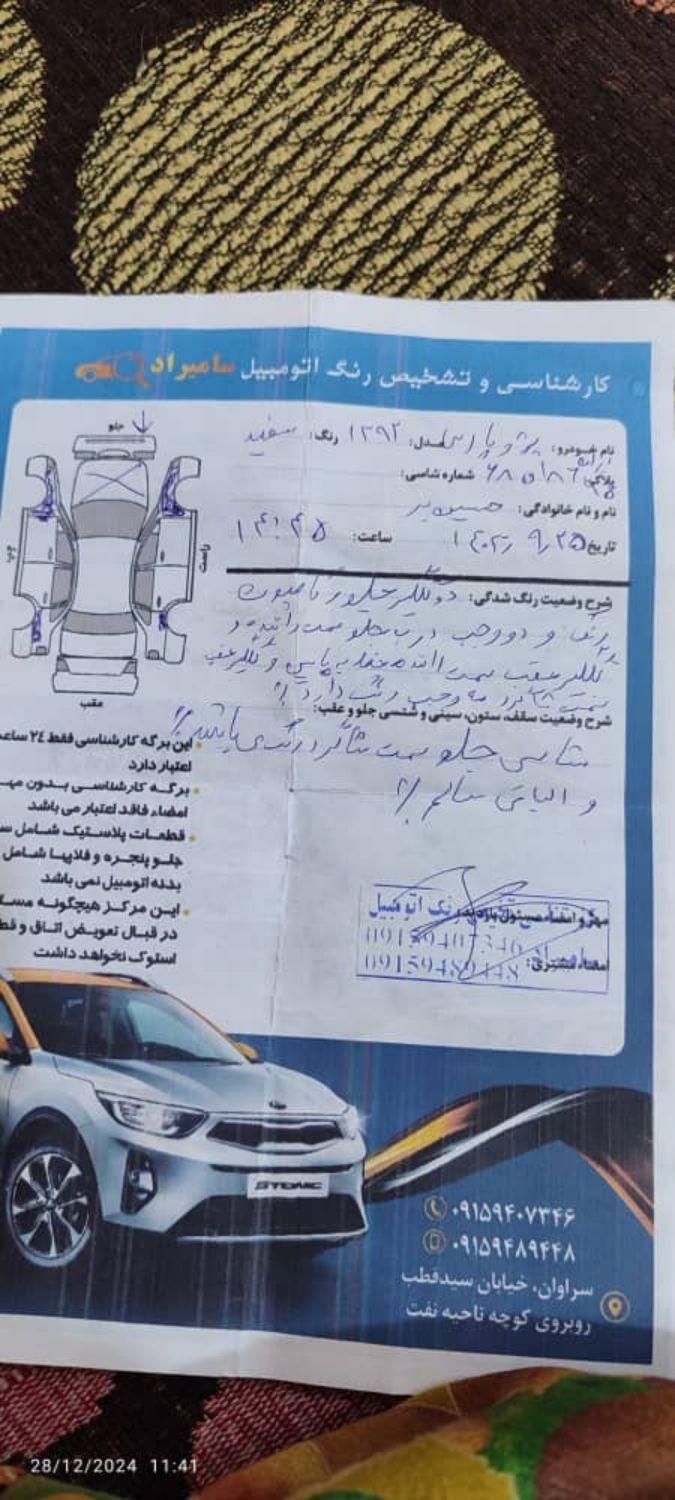 کارشناسی و تشخیص رنگ اتومبیل سامیراد
نام خودرو: پژو پارس مدل: ۱۳۹۲ رنگ: سفید
پلاک: شماره شاسی:
نام و نام خانوادگی: حسین بر
تاریخ: ۱۴۰۳/۹/۲۵ ساعت: ۱۴:۴۵
جلو
راست
چپ
عقب
شرح وضعیت رنگ شدگی: دو گلگیر جلو و کاپوت
رنگ و دور درب جلو سمت راننده و
گلگیر عقب سمت راننده و گلگیر عقب
سمت شاگرد رنگ دارد
شرح وضعیت سقف، ستون، سینی و شاسی جلو و عقب:
شاسی جلو سمت شاگرد رنگ می باشد
و الباقی سالم
این برگه کارشناسی فقط ۲۴ ساعت
اعتبار دارد
برگه کارشناسی بدون مهر
امضاء فاقد اعتبار می باشد
قطعات پلاستیک شامل
جلو پنجره و فلاپها شامل
بدنه اتومبیل نمی باشد
این مرکز هیچگونه
در قبال تعویض اتاق و
استوک نخواهد داشت
مهر و امضاء مسئول بازدید:
رنگ اتومبیل
09159407346
امضاء مشتری:
09159489448
STONIC
۰۹۱۵۹۴۰۷۳۴۶
۰۹۱۵۹۴۸۹۴۴۸
سراوان، خیابان سیدقطب
روبروی کوچه ناحیه نفت
28/12/2024 11:41